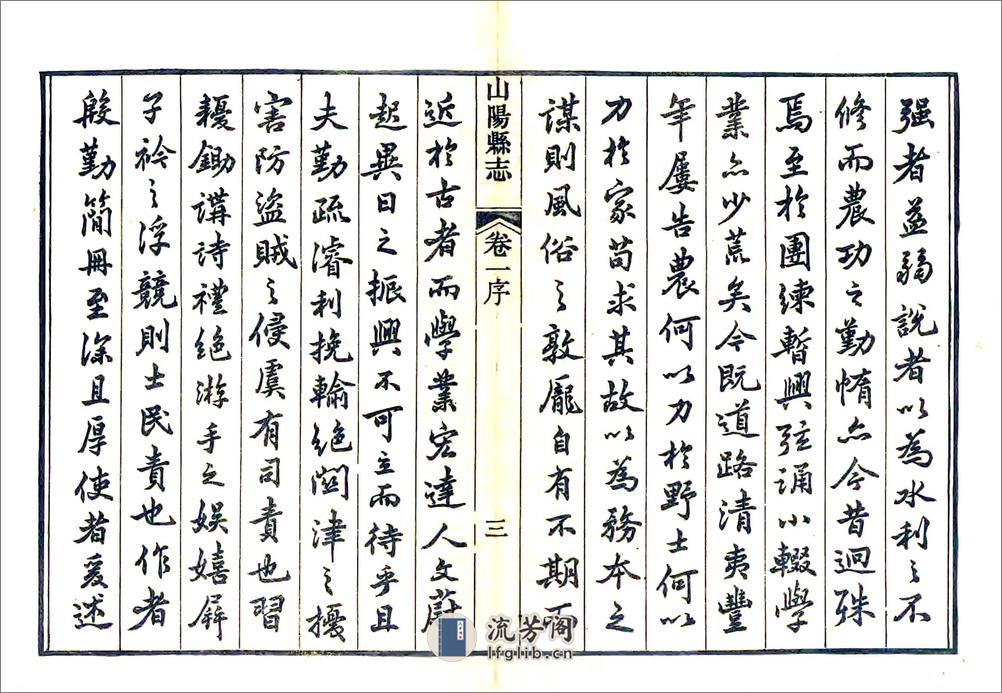 强者益弱說者以為水利之不
修而農功之勤惰亦今昔迥殊
焉至於團練暫興弦誦小輟學
業亦少荒矣今既道路清夷豐
年屢告農何以力於野士何以
力於家苟求其故以為務本之
謀則風俗之敦龎自有不期而
山陽縣志
卷一序
三
近於古者而學業宏達人文蔚
起異日之振興不可立而待乎且
夫勤疏濬利挽輸絕關津之擾
害防盜賊之侵虞有司責也習
耰鋤講詩禮絕游手之娛嬉屏
子衿之浮競則士民責也作者
殷勤簡冊至深且厚使者爰述
流芳阁
lfglib.cn